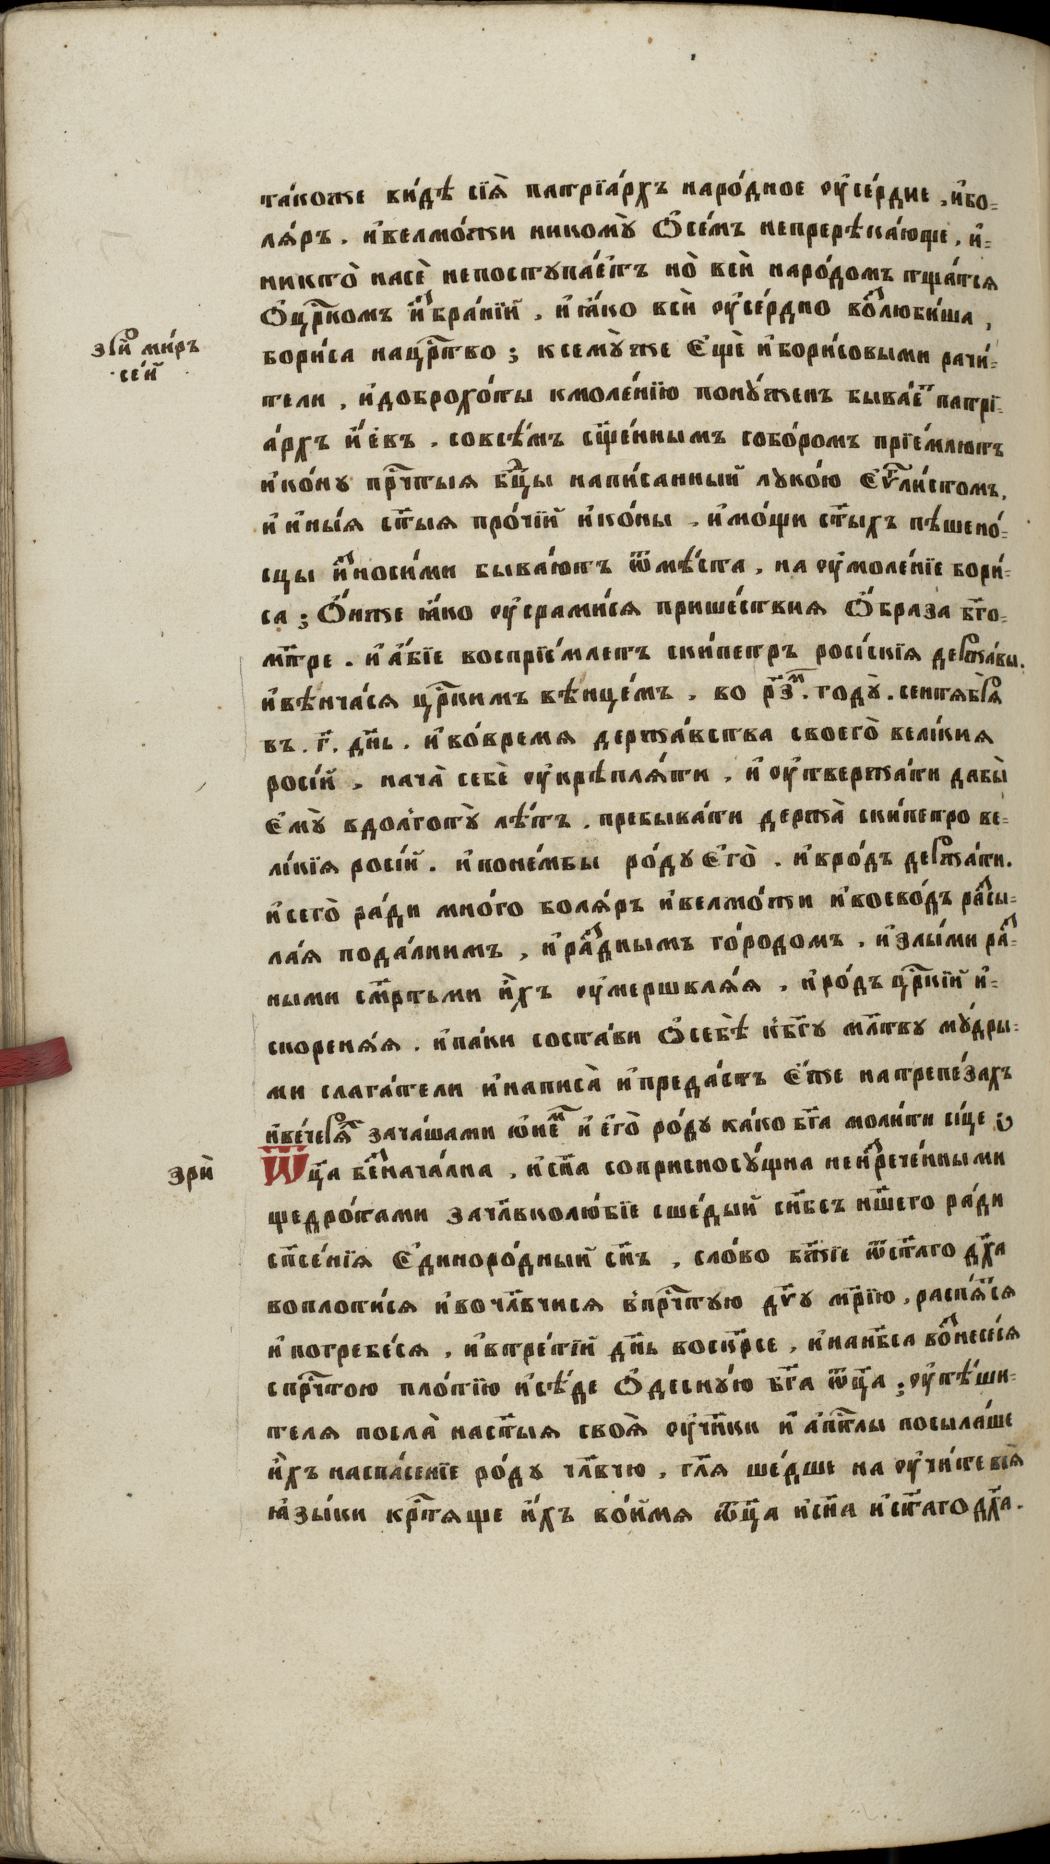 та́коже ви́дѣ сїѧ̀ патрїа́рхъ наро́дное ᲂу҆се́рдие , и҆бо=
лѧ́ръ . и҆велмо́жи никомꙋ̀ Ѻ҆се́мъ непререка́юще , и҆=
никто̀ насѐ непоступа́етъ но̀ всѝ наро́домъ тща́тсѧ
Ѻ҆црⷭ҇комъ и҆збра́нїй , и҆ ꙗ҆́ко всѝ ᲂу҆се́рдно возлюби́ша ,
бори́са нацрⷭ҇тво ; ксемꙋ́же Е҆щѐ и҆бори́совыми рачи́=
зри́ ми́ръ
се́й
тели , и҆доброхо́ты кмоле́нїю пону́женъ быва́етъ патрї=
а́рхъ и҆́евъ . совсѣ́мъ сщ҃е́ннымъ собо́ромъ прїе́млютъ
и҆ко́ну прⷱ҇тыѧ бцⷣы напи́санный луко́ю Еѵⷢ҇ли́стомъ .
и҆ и҆ны́ѧ ст҃ыѧ про́чїй и҆ко́ны . и҆мо́щи ст҃ыхъ пѣшено́=
сцы и҆зноси́ми быва́ютъ ѿмѣ́ста , на ᲂу҆моле́нїе бори́=
са ; Ѻ҆́нже ꙗ҆́ко ᲂу҆срами́сѧ прише́ствиѧ Ѻ҆́браза бг҃о=
мт҃ре . и҆ а҆́бїе восприе́млетъ ски́петръ росі́скїѧ держа́вы .
и҆вѣнча́сѧ црⷭ҇кимъ вѣнце́мъ . во рз҃м . годꙋ̀ . сентѧбрѧ
въ . г҃ . дн҃ь . и҆ во́времѧ держа́вства своего̀ вели́киѧ
росі́й , нача̀ себѐ ᲂу҆крѣплѧ́ти , и҆ ᲂу҆твержа́ти дабы̀
Е҆мꙋ̀ вдолготꙋ̀ лѣ́тъ . пребыва́ти держа̀ ски́петро ве=
ли́кїѧ росі́й . и҆поне́мбы ро́ду Е҆го̀ . и҆вро́дъ держа́ти .
и҆сего̀ ра́ди мно́го болѧ́ръ и҆велмо́жи и҆воево́дъ разсы=
ла́ѧ пода́лнимъ , и҆ ра́зднымъ го́родомъ . и҆злы́ми ра́з=
ными см҃ртьми и҆́хъ ᲂу҆мершвлѧ́ѧ , и҆ро́дъ црⷭ҇кїй и҆=
скоренѧ́ѧ . и҆па́ки соста́ви Ѻ҆себѣ̀ к҆бг҃у мл҃тву му́дры=
ми слага́тели и҆написа̀ и҆преда́стъ Е҆́же натрепе́захъ
и҆ве́черѧⷯ зача́шами ю҆не́мъ и҆ е҆го̀ ро́ду ка́ко бг҃а моли́ти си́це
зрѝ
Ѿц҃а безнача́лна , и҆сн҃а соприсносу́щна неизрече́нными
щедро́тами зачл҃вколю́бїе сше́дый сн҃бсъ нш҃его ра́ди
сп҃се́нїѧ Е҆диноро́дный сн҃ъ , сло́во бж҃їе ѿст҃аго дх҃а
воплоти́сѧ и҆вочл҃вчисѧ в҆прⷱ҇тую дв҃у мр҃їю , распѧ́тсѧ
и҆ погребе́сѧ , и҆втре́тїй дн҃ь воскр҃се , и҆нан҃бса вознесе́сѧ
спрⷱ҇тою пло́тїю и҆сѣ́де Ѻ҆десну́ю бг҃а ѿц҃а ; ᲂу҆тѣ́ши=
телѧ посла̀ наст҃ыѧ своѧ̀ ᲂу҆чн҃ки и҆ а҆пⷭ҇лы посыла́ше
и҆́хъ наспасе́нїе ро́ду чл҃вчю , гл҃ѧ ше́дше на ᲂу҆чи́те всѧ̀
ꙗ҆зы́ки крⷭ҇тѧще и҆́хъ во́имѧ ѿц҃а и҆сн҃а и҆ст҃аго дх҃а .